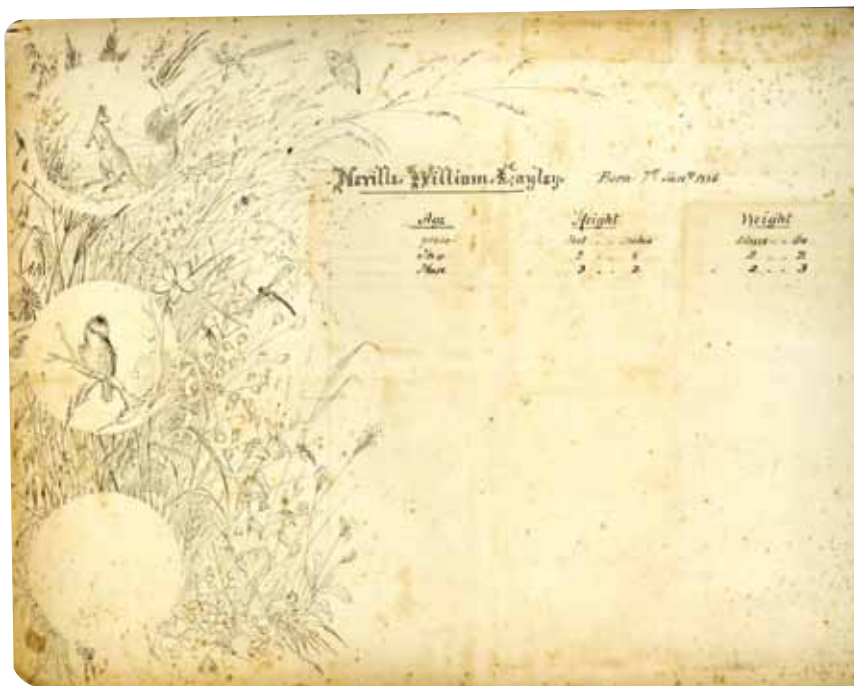 Neville William Cayley. Born 7th Jany 1886
Age Height Weight
years feet .. inches stone .. lbs
Two 2 .. 2 .. 2
Three 3 .. 2 2 .. 3